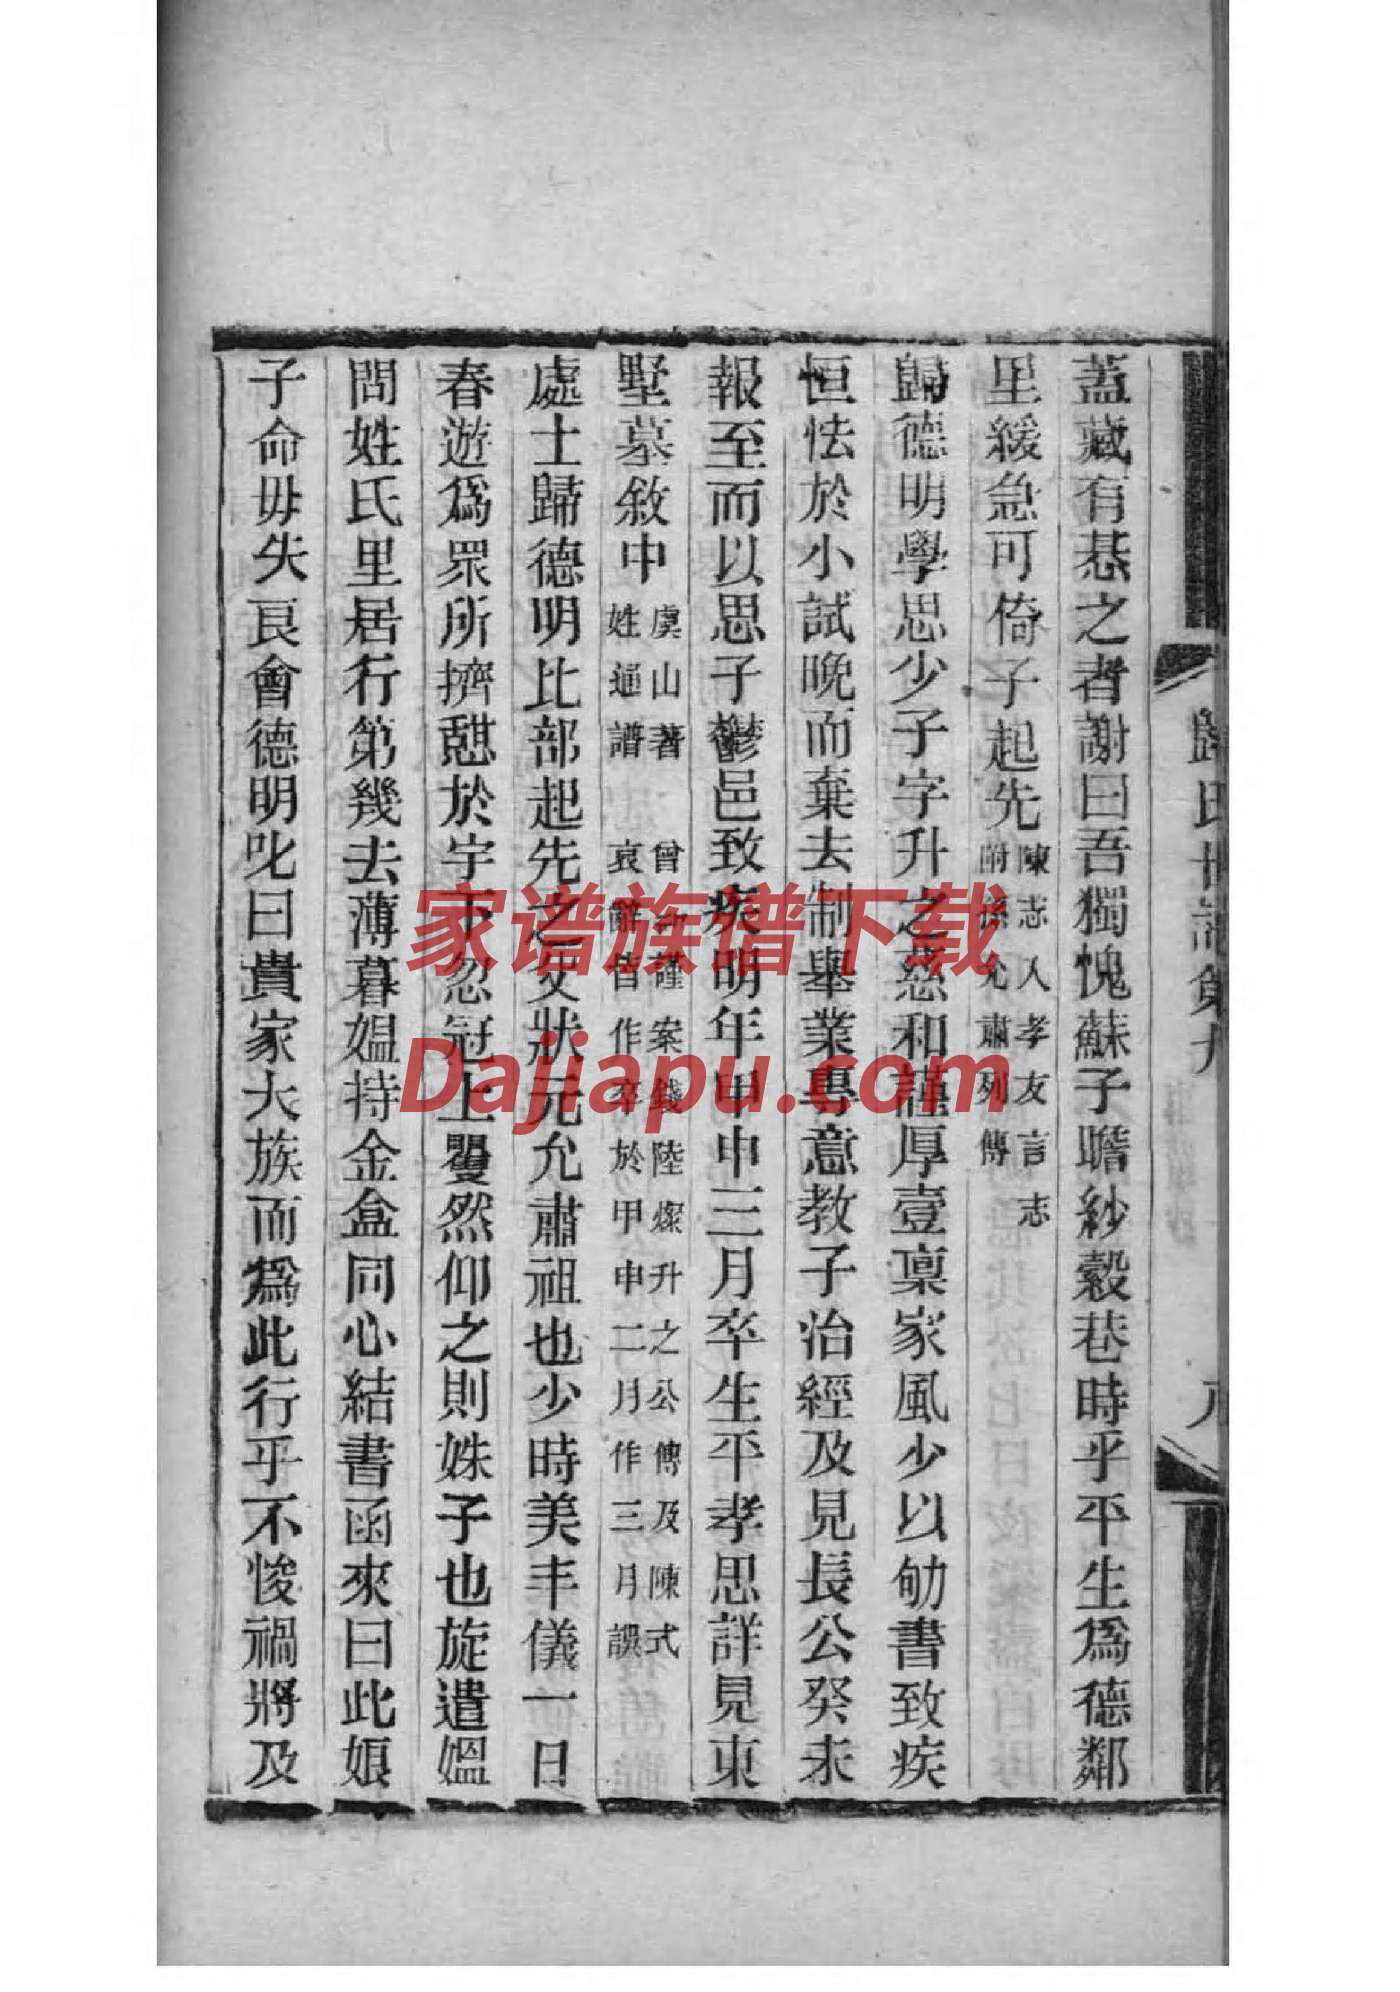 蓋藏有惎之者謝曰吾獨愧蘇子瞻紗縠巷時乎平生爲德鄰
里緩急可倚子起先陳志入孝友言志
附孫允肅列傳
歸德明學思少子字升之慈和謹厚壹稟家風少以劬書致疾
恒怯於小試晚而棄去制舉業專意教子治經及見長公癸未
報至而以思子鬱邑致疾明年甲申三月卒生平孝思詳見東
墅墓敘中虞山著
姓通譜
曾謹案錢陸燦升之公傳及陳式
哀辭皆作卒於甲申二月作三月誤
處士歸德明比部起先之父狀元允肅祖也少時美丰儀一日
春遊爲眾所擠憩於宇下忽冠上矍然仰之則姝子也旋遣媼
問姓氏里居行第幾去薄暮媼持金盒同心結書函來曰此娘
子命毋失良會德明叱曰貴家大族而爲此行乎不悛禍將及
歸氏世記第九
八
家谱族谱下载
Dajiapu.com